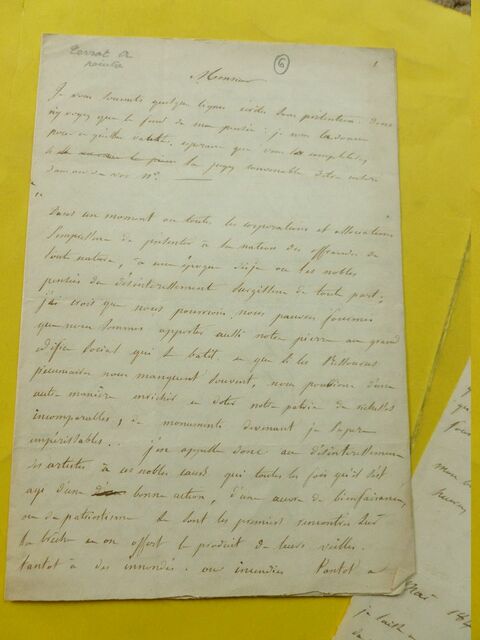 peintre
6
1
Monsieur
Je vous soumets quelques lignes écrites sans prétention. Donc
n'y voyez que le fond de ma pensée : je vous les donne
pour ce qu'elles valent, espérant que vous les completerez
si la jugez convenable d'etre insérée
dans un de vos Nos.
Dans un moment ou toutes les corporations et associations
s'empressent de présenter à la nation des offrandes de
toute nature, à une époque dis-je ou les nobles
pensées de désintéressement surgissent de toute part,
j'ai crois que nous pourrions nous pauvres
que nous sommes apporter aussi notre pierre au grand
édifice social qui se batit, et que si les ressources
pécuniaires nous manquent souvent, nous pouvions d'une
autre manière enrichir et doter notre patrie de richesses
incomparables, de monuments devenant je l'espere
impérissables... j'en appelle donc au désintéressement
des artistes à ces nobles cœurs qui toutes les fois qu'il s'est
agi d'une bonne action, d'une œuvre de bienfaisance
ou de patriotisme se sont les premiers rencontrés sur
la brèche et on offert le produit de leurs veilles.
tantot à des innondés ou incendiés tantot a
Mai 184
je